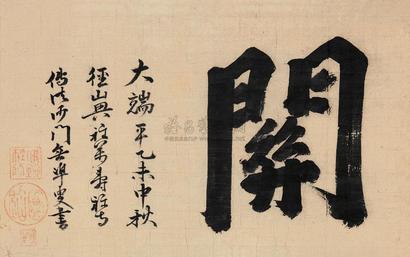 關
大端平乙未中秋
徑山興聖萬壽禪寺
傳法沙門無準叟書